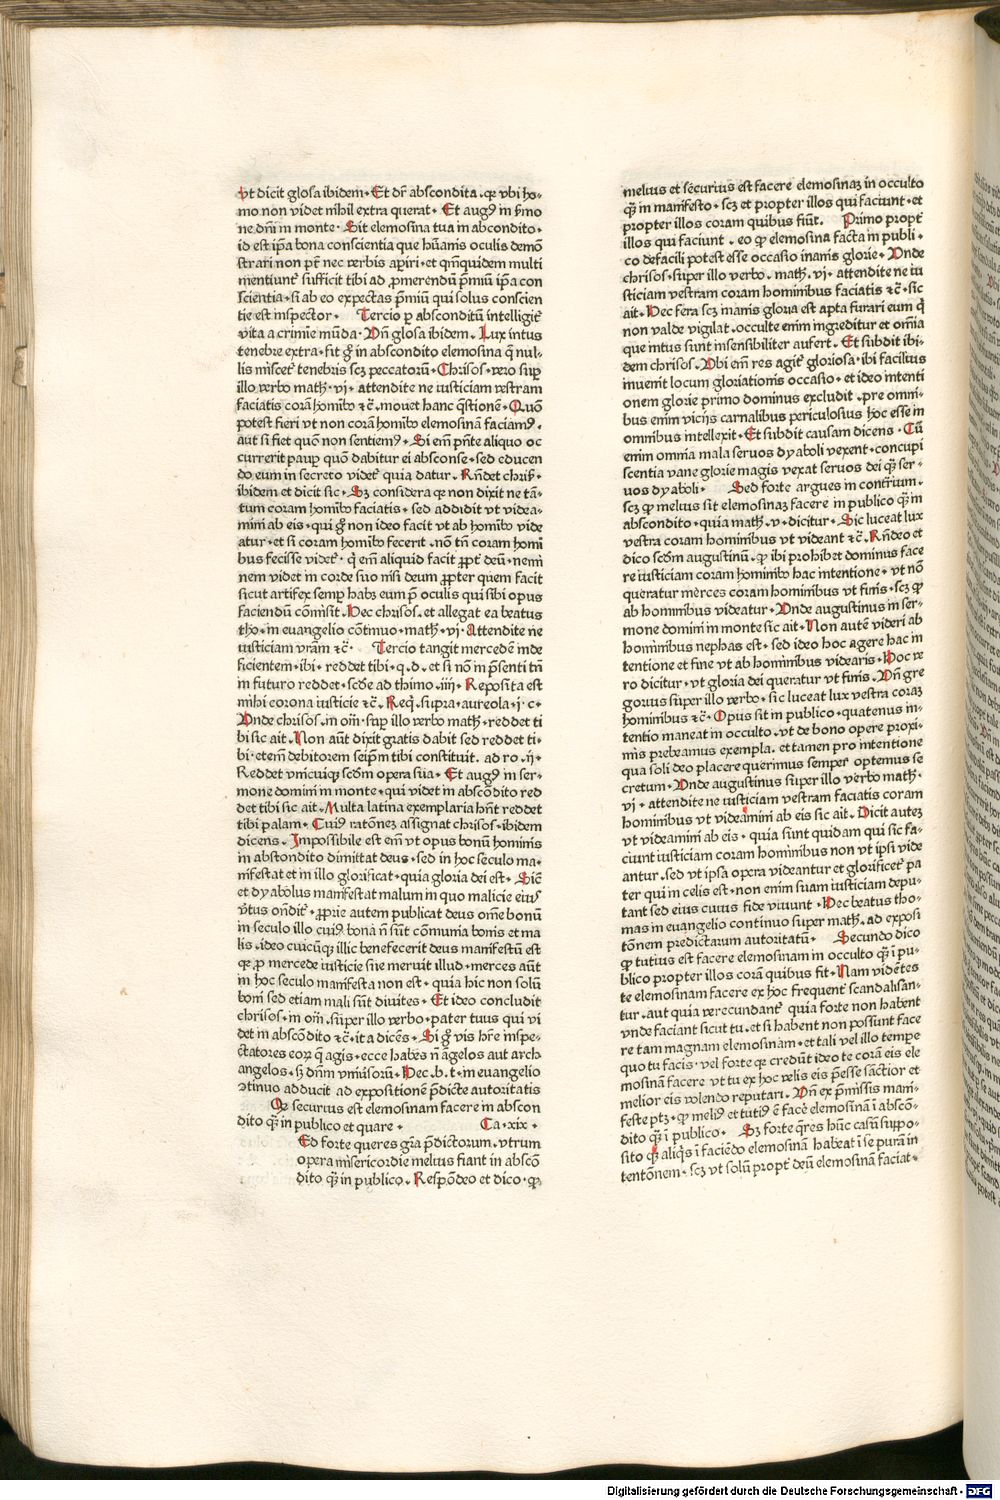 Vt dicit glosa ibidem. Et dr̃ abscondita. qꝛ vbi ho⸗
mo non videt nihil extra querat. Et augꝰ in ẜmo
ne dñi in monte. Sit elemosina tua in abcondito.
id est ip̃a bona conscientia que hũanis oculis demõ
strari non pr̃t nec verbis apiri. et qñquidem multi
mentiunt᷑ sufficit tibi ad ꝓmerendũ p̃miũ ip̃a con
scientia. si ab eo expectas p̃miũ qui solus conscien
tie est inspector. Tercio ꝑ absconditũ intelligit᷑
vita a crimie mũda. Vñ glosa ibidem. Lux intus
tenebre extra. fit g̃ in abscondito elemosina q̃ nul⸗
lis miscet᷑ tenebris scꝫ peccatorũ. Chrisos. vero suꝑ
illo verbo math. vi. attendite ne iusticiam vestram
faciatis corã homĩbꝰ ⁊c̃. mouet hanc q̃stionẽ. Quõ
potest fieri vt non corã homĩbꝰ elemosinã faciamꝰ.
aut si fiet quõ non sentiemꝰ. Si em̃ p̃nte aliquo oc
currerit pauꝑ quõ dabitur ei absconse. sed educen
do eum in secreto videt᷑ quia datur. Rñdet chris.
ibidem et dicit sic. Sꝫ considera qꝛ non dixit ne tã⸗
tum coram homĩbꝰ faciatis. sed addidit vt videa⸗
mini ab eis. qui g̃ non ideo facit vt ab homĩbꝰ vide
atur. et si coram homĩbꝰ fecerit. nõ tñ coram homi
bus fecisse videt᷑. q̇ em̃ aliquid facit ꝓpt᷑ deũ. nemi
nem videt in corde suo nisi deum ꝓpter quem facit
sicut artifex semꝑ habꝫ eum p̃ oculis qui sibi opus
faciendũ cõmisit. Hec chrisos. et allegat ea beatus
tho. in euangelio cõtinuo. math. vi. Attendite ne
iusticiam vr̃am ⁊c̃. Tercio tangit mercedẽ inde
ficientem. ibi. reddet tibi. q. d. et si nõ in p̃senti tñ
in futuro reddet. scd̃e ad thimo. iiij. Reposita est
mihi corona iusticie ⁊c̃. Req. supra. aureola. j. c.
Vnde chrisos. in om̃. suꝑ illo verbo math. reddet ti
bi sic ait. Non aũt dixit gratis dabit sed reddet ti⸗
bi. etem̃ debitorem seip̃m tibi constituit. ad ro. ij.
Reddet vnicuiqꝫ scd̃m opera sua. Et augꝰ in ser⸗
mone domini in monte. qui videt in abscõdito red
det tibi sic ait. Multa latina exemplaria hñt reddet
tibi palam. Cuiꝰ ratõnez assignat chrisos. ibidem
dicens. Impossibile est em̃ vt opus bonũ hominis
in abstondito dimittat deus. sed in hoc seculo ma⸗
nifestat et in illo glorificat. quia gloria dei est. Sic̃
et dyabolus manifestat malum in quo malicie eiuꝰ
v̾tus oñdit᷑. ꝓprie autem publicat deus om̃e bonũ
in seculo illo cuiꝰ bona ñ sũt cõmunia bonis et ma
lis. ideo cuicũqꝫ illic benefecerit deus manifestũ est
qꝛ ꝓ mercede iusticie sue meruit illud. merces aũt
in hoc seculo manifesta non est. quia hic non solũ
boni sed etiam mali sũt diuites. Et ideo concludit
chrisos. in om̃. suꝑer illo verbo. pater tuus qui vi
det in abscõdito ⁊c̃. ita dicẽs. Si g̃ vis hr̃e inspe⸗
ctatores eoꝝ q̃ agis. ecce habes ñ ãgelos aut arch
angelos. sꝫ dñm vniũsorũ. Hec. b. t. in euangelio
ꝯtinuo adducit ad expositionẽ p̃dicte autoritatis
Qꝛ securius est elemosinam facere in abscon
dito qꝫ̃ in publico et quare. Ca. xix.
Ed forte queres gr̃a p̃dictorum. vtrum
opera misericordie melius fiant in abscõ
dito qꝫ̃ in publico. Respõdeo et dico. ꝙ
melius et securius est facere elemosinaꝫ in occulto
qꝫ̃ in manifesto. scꝫ et propter illos qui faciunt. et
propter illos coram quibus fiũt. Primo propt᷑
illos qui faciunt. eo ꝙ elemosina facta in publi⸗
co defacili potest esse occasio inanis glorie. Vnde
chrisos. super illo verbo. math. vi. attendite ne iu
sticiam vestram coram hominibus faciatis ⁊c̃. sic
ait. Hec fera scꝫ inanis gloria est apta furari eum q̇
non valde vigilat. occulte enim ingreditur et om̃ia
que intus sunt insensibiliter aufert. Et subdit ibi⸗
dem chrisos. Vbi em̃ res agit᷑ gloriosa. ibi facilius
inuenit locum gloriationis occasio. et ideo intenti
onem glorie primo dominus excludit. pre omni⸗
bus enim vicijs carnalibus periculosius hoc esse in
omnibus intellexit. Et subdit causam dicens. Cũ
enim omnia mala seruos dyaboli vexent. concupi
scentia vane glorie magis vexat seruos dei qꝫ̃ ser⸗
uos dyaboli. Sed forte argues in contrĩum.
scꝫ ꝙ melius sit elemosinaꝫ facere in publico qꝫ̃ in
abscondito. quia math. v. dicitur. Sic luceat lux
vestra coram hominibus vt videant ⁊c̃. Rñdeo et
dico scd̃m augustinũ. ꝙ ibi prohibet dominus face
re iusticiam coram hominibꝰ hac intentione. vt nõ
queratur merces coram hominibus vt finis. scꝫ ꝙ
ab hominibus videatur. Vnde augustinus in ser⸗
mone domini in monte sic ait. Non autẽ videri ab
hominibus nephas est. sed ideo hoc agere hac in
tentione et fine vt ab hominibus videaris. Hoc ve
ro dicitur. vt gloria dei queratur vt finis. Vñ gre
gorius super illo verbo. sic luceat lux vestra coraꝫ
hominibus ⁊c̃. Opus sit in publico. quatenus in⸗
tentio maneat in occulto. vt de bono opere proxi⸗
mis prebeamus exempla. et tamen pro intentione
qua soli deo placere querimus semper optemus se
cretum. Vnde augustinus super illo verbo math.
vj. attendite ne iusticiam vestram faciatis coram
hominibus vt videamini ab eis sic ait. Dicit autez
vt videamini ab eis. quia sunt quidam qui sic fa⸗
ciunt iusticiam coram hominibus non vt ipsi vide
antur. sed vt ipsa opera videantur et glorificet᷑ pa
ter qui in celis est. non enim suam iusticiam depu⸗
tant sed eius cuius fide viuunt. Hec beatus tho⸗
mas in euangelio continuo super math. ad exposi
tõnem predictarum autoritatũ. Secundo dico
ꝙ tutius est facere elemosinam in occulto qꝫ̃ ĩ pu⸗
blico propter illos corã quibus fit. Nam vidẽtes
te elemosinam facere ex hoc frequent᷑ scandalisan⸗
tur. aut quia verecundant᷑ quia forte non habent
vnde faciant sicut tu. et si habent non possunt face
re tam magnam elemosinam. et tali vel illo tempe
quo tu facis. vel forte qꝛ credũt ideo te corã eis ele
mosinã facere vt tu ex hoc velis eis p̃esse sãctior et
melior eis volendo reputari. Vñ ex p̃missis mani⸗
feste ptꝫ. ꝙ meliꝰ et tutiꝰ ẽ facẽ elemosinã ĩ abscõ⸗
dito qꝫ̃ ĩ publico. Sꝫ forte q̃res hũc casũ suppo⸗
sito ꝙ aliq̇s ĩ faciẽdo elemosinã habeat ĩ se purã in
tentõnem. scꝫ vt solũ propt᷑ deũ elemosinã faciat.
Digitalisierung gefördert durch die Deutsche Forschungsgemeinschaft - DFG